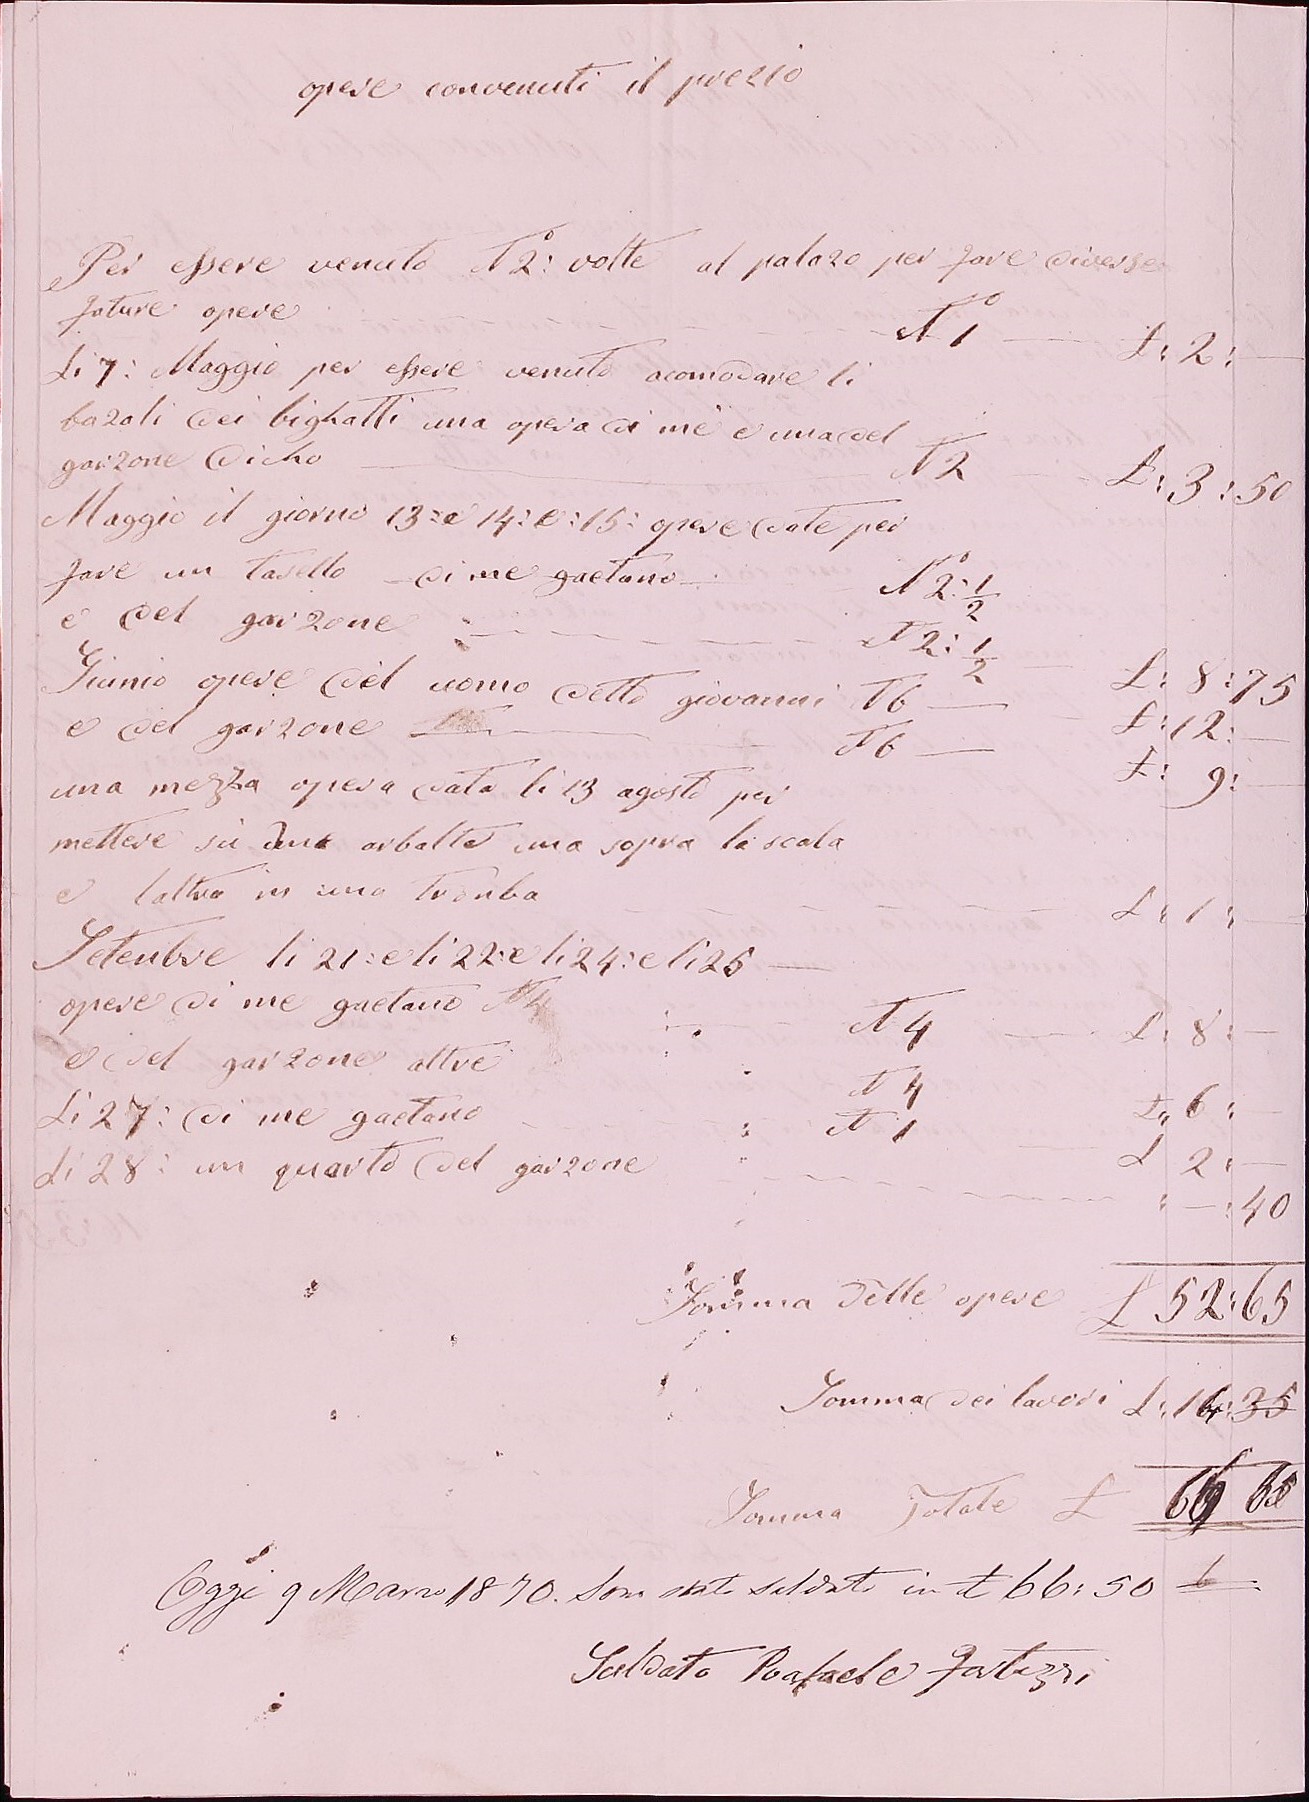 opere convenuti il prezio
Per essere venuto N° 2: volte al palazo per fare diverse
fature opere N° 1 £: 2:
Li 7: Maggio per essere venuto acomodare li
bazoli dei bighatti una opera di me e una del
garzone dicho N 2 £: 3: 50
Maggio il giorno 13: e 14: e: 15: opere date per
fare un tasello di me gaetano N° 2: 1/2
e del garzone N 2: 1/2 £: 8: 75
Giunio opere del uomo detto giovanni N 6 £: 12:
e del garzone N 6 £: 9:
una mezza opera data li 13 agosto per
mettere su due arbalte una sopra la scala
e laltra in una tromba £: 1:
Setenbre li 21: e li 22: e li 24: e li 25
opere di me gaetano N 4 N 4 £: 8:
e del garzone altre N 4 £: 6:
Li 27: di me gaetano N 1 £ 2:
Li 28: un quarto del garzone : 40
Somma delle opere £ 52: 65
Somma dei lavori £: 35
Somma Totale £
Oggi 9 Marzo 1870. Son stato saldato in £ 66: 50
Saldato Rafaele